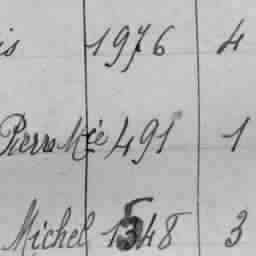 is 1976 4
Pierre Mée 491 1
Michel 1348 3